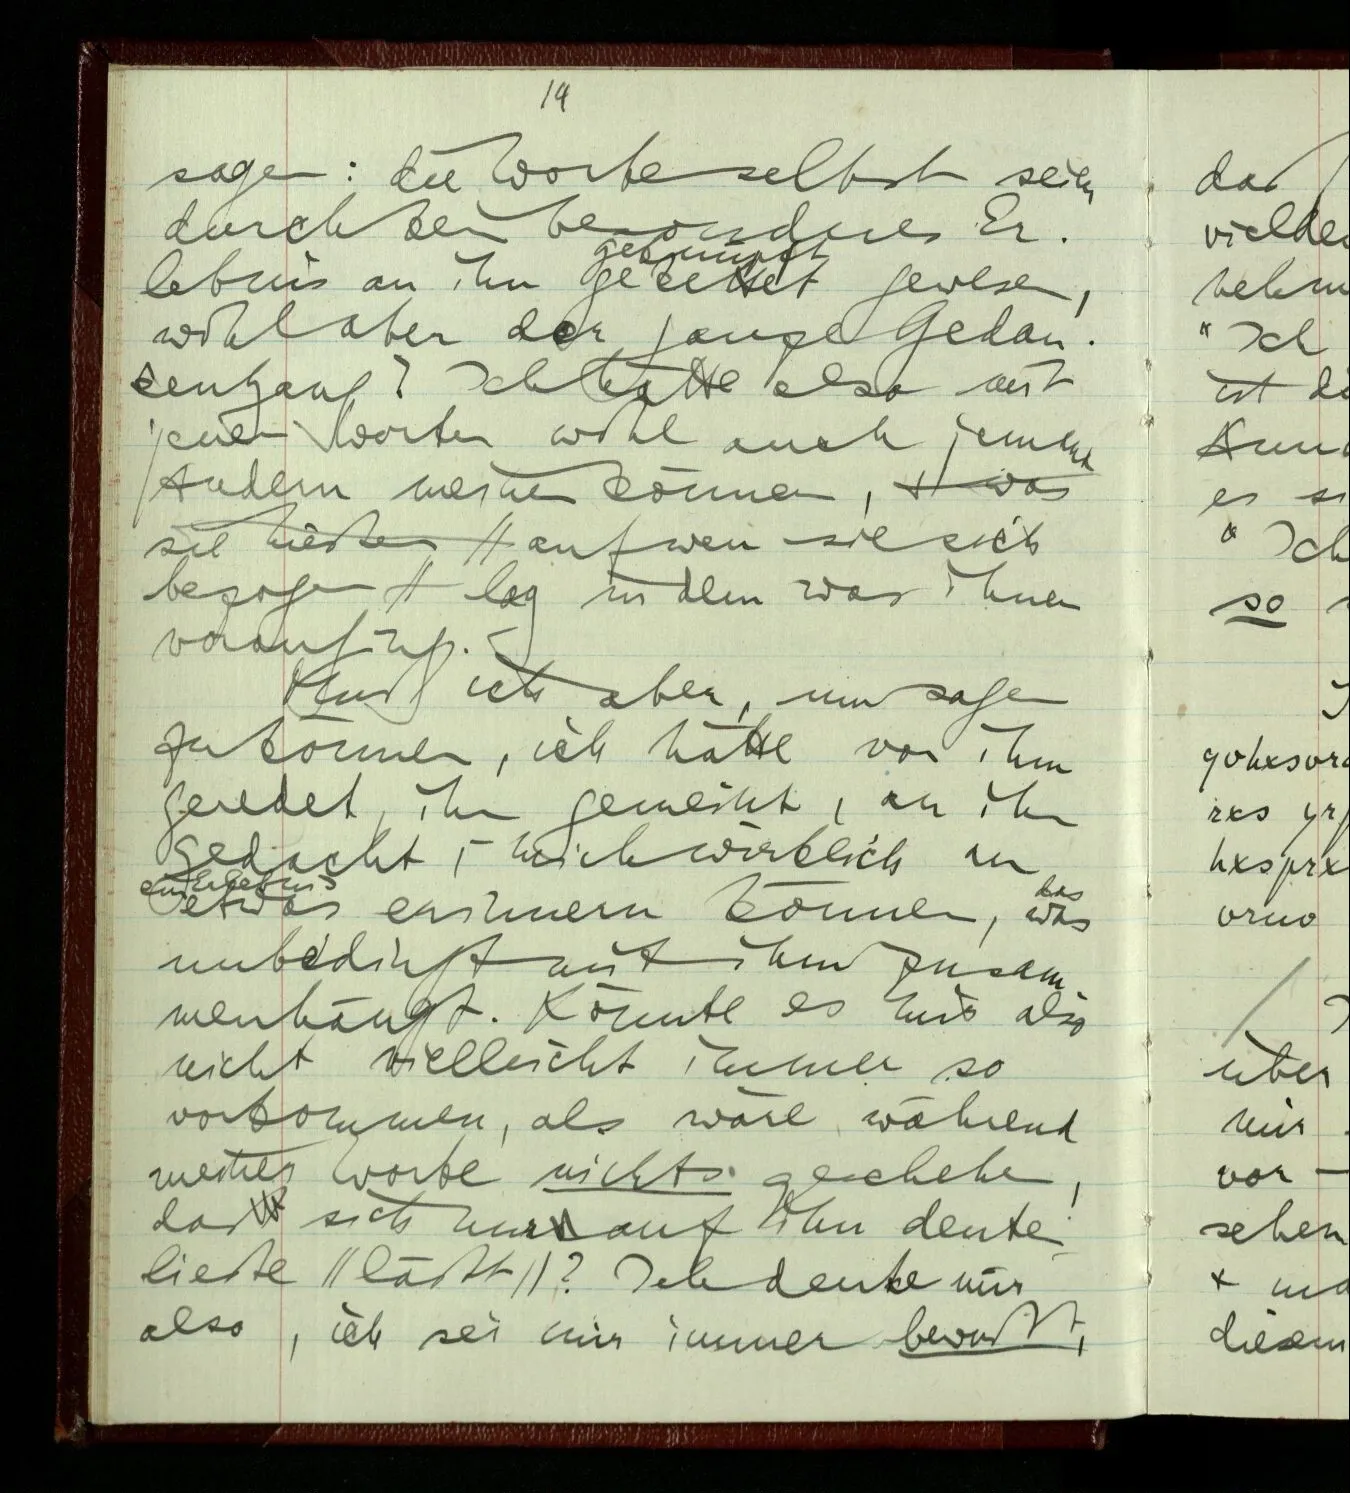 14
sagen: die Worte selbst seien
durch kein besonderes Er-
geknüpft
lebnis an ihn gekettet gewesen,
wohl aber der ganze Gedan-
kengang? Ich hätte also mit
jenen Worten wohl auch jemand
Andern meinen können, & was
sie hießen // auf wen sie sich
bezogen // lag in dem was ihnen
voranging.
Muß ich aber, um sagen
zu können, ich hätte von ihm
geredet, ihn gemeint, an ihn
gedacht, – mich wirklich an
ein Erlebnis das
etwas erinnern können, was
unbedingt mit ihm zusam-
menhängt. Könnte es mir also
nicht vielleicht immer so
vorkommen, als wäre während
meiner Worte nichts geschehen,
das sich nur auf ihn deuten
ließe // läßt //? Ich denke mir
also, ich sei mir immer bewußt,
das
vielde
nehm
"Ich
ist di
Kun
es
"Ich
so
qvhxsvr
rxs yr
hxsprx
vrno
über
mir
vor –
sehen
+ ma
diesem